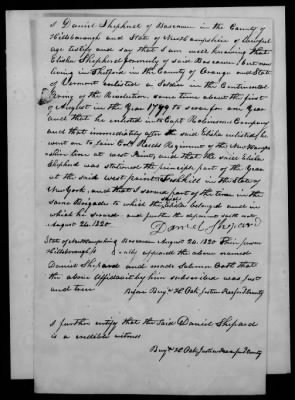 I Daniel Shepherd of Boscawen in the County of
Hillsborough and State of Newhampshire of lawful
age testify and say that I am well knowing that
Elisha Shephard formerly of said Boscawen, but now
living in Thetford in the County of Orange and State
of Vermont enlisted a Soldier in the Continental
Army of the Revolution some time about the first
of August in the Year 1779 to serve for one Year
and that he enlisted into Capt Robinsons Company
and that immediately after the said Elisha enlisted he
went on to Join Colo Reeds Regiment of the Newhamp-
shire line at west Point, and that the said Elisha
Shepherd was stationed the principle part of the Year
at the said west point & Fishkill in the State of
New York, and that I served part of the time in the
same Brigade to which the said Elisha belonged and in
which he served and further the deponent saith not
August 24. 1820
Daniel Shepard
State of Newhampshire Boscawen August 24. 1820 Then person-
Hillsborough Ss ally appeared the above named
Daniel Shepard and made Solemn Oath that
the above Affidavit by him subscribed was just
and true
Before Benjn
Justice Peace for sd County
I further certify that the said Daniel Shepard
is a credible witness
Benjn
Justice Peace for sd County